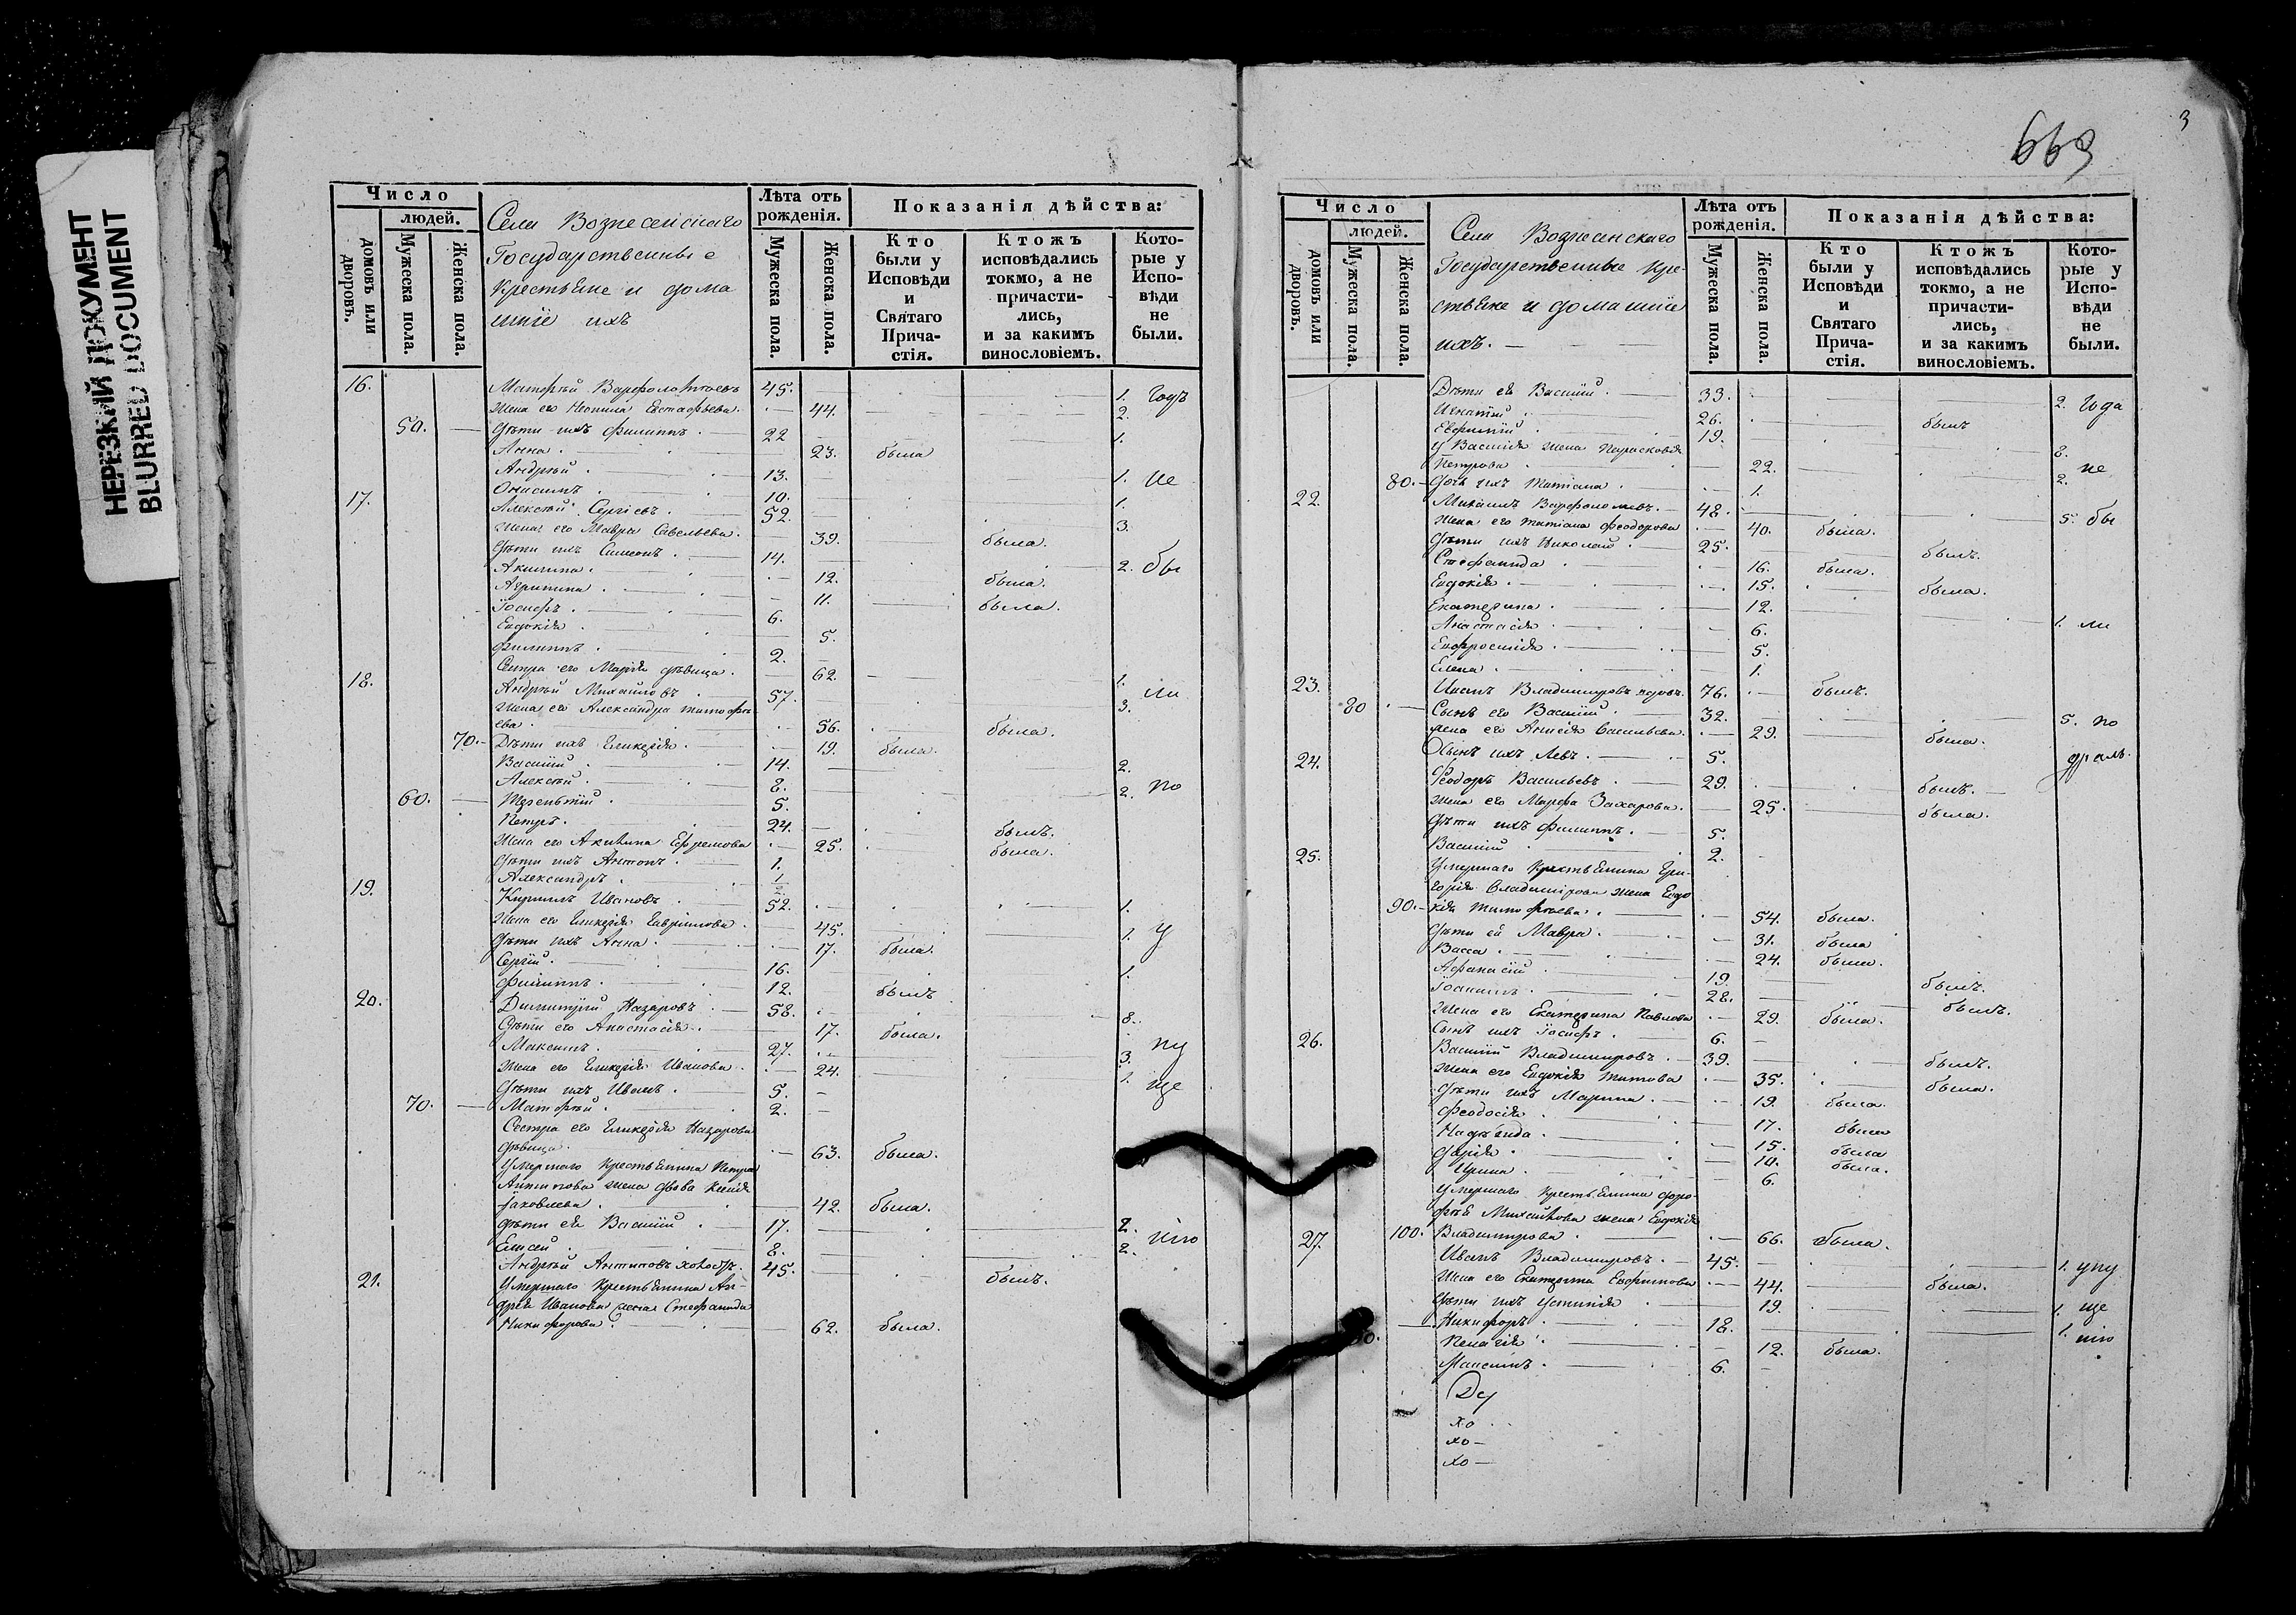 НЕРЕЗКИЙ ДОКУМЕНТ
BLURRED DOCUMENT
Число
людей.
домовъ или дворовъ.
Мужеска пола.
Женска пола.
Села Вознесенскаго
Государственные
крестьяне и дома
шніе ихъ
Лѣта отъ рожденія.
Мужеска пола.
Женска пола.
Показанія дѣйства:
Кто были у Исповѣди и Святаго Причастія.
Ктожъ исповѣдались токмо, а не причастились, и за какимъ винословіемъ.
Которые у Исповѣди не были.
16. Матфей Варфоломеевъ 45. 1. Годъ
жена его Неонила Евстафьева. 44. 2.
50. дѣти ихъ Филиппъ. 22 1.
Анна. 23. была
Андрей. 13. 1. не
Онисимъ 10. 1.
17. Алексѣй Сергіевъ. 52. 3.
жена его Мавра Савельева. 39. была.
дѣти ихъ Симеонъ. 14. 2. бы
Акилина. 12. была.
Агрипина. 11. была.
Іосифъ. 6.
Евдокія. 5.
Филиппъ. 2.
Сестра его Марія дѣвица. 62. 1.
18. Андрей Михайловъ. 57. 3. ли
жена его Александра Тимофѣ
ева. 56. была.
70. Дѣти ихъ Гликерія. 19. была.
Василій. 14. 2.
Алексѣй. 8. 2. по
60. Терентій. 5.
Петръ. 24. былъ.
жена его Акилина Ефремова 25. была.
дѣти ихъ Антонъ. 1.
Александръ.
19. Кирилъ Ивановъ. 52. 1.
жена его Гликерія Гавріилова. 45. 1. у
дѣти ихъ Анна. 17. была.
Сергій. 16. 1.
Филиппъ. 12. былъ
20. Димитрій Назаровъ. 58. 8.
дѣти его Анастасія. 17. была.
Максимъ. 27. 3. пу
жена его Гликерія Иванова. 24. 1.
дѣти ихъ Иванъ. 5. ще
70. Матфей. 2.
Сестра его Гликерія Назарова
дѣвица. 63. была.
умершаго крестьянина Петра
Антипова жена вдова Ксенія
Іаковлева. 42. была.
дѣти ея Василій. 17. 2.
Елисей. 8. 2. нію
Андрей Антиповъ холостъ. 45. былъ.
21. умершаго крестьянина Ан-
дрея Иванова жена Стефанида
Никифорова. 62. была.
669
3
Число
людей.
домовъ или дворовъ.
Мужеска пола.
Женска пола.
Села Вознесенскаго
Государственные кре-
стьяне и домашніе
ихъ.
Лѣта отъ рожденія.
Мужеска пола.
Женска пола.
Показанія дѣйства:
Кто были у Исповѣди и Святаго Причастія.
Ктожъ исповѣдались токмо, а не причастились, и за какимъ винословіемъ.
Которые у Исповѣди не были.
Дѣти ея Василій. 33. 2. года
Игнатій. 26. былъ
Евфимій. 19. 8.
у Василія жена Парасковія
Петрова. 22. 2. не
80. дочь ихъ Татіана. 1.
22. Михаилъ Варфоломеевъ. 48. 5. бы
жена его Татіана Феодорова 40. была.
дѣти ихъ Николай. 25. былъ.
Стефанида. 16. была.
Евдокія. 15. была.
Екатерина. 12. 1. ли
Анастасія. 6.
Евфросинія. 5.
Елена. 1.
23. Иванъ Владимировъ вдовъ. 76. былъ.
80 Сынъ его Василій. 32. 5. по
жена его Анисія Савельева. 29. была.
Сынъ ихъ Левъ. 5.
24. Феодоръ Васильевъ. 29. былъ.
жена его Марфа Захарова. 25. была.
дѣти ихъ Филиппъ. 5.
Василій 2.
25. умершаго крестьянина Гри-
горія Владимірова жена Евдо
90. кія Тимофѣева. 54. была.
дѣти ея Мавра. 31. была
Васса. 24. была.
Афанасій 19. былъ.
Іоаннъ. 28. былъ.
жена его Екатерина Павлова 29. была.
Сынъ ихъ Іосифъ. 6.
26. Василій Владимировъ. 39. былъ.
жена его Евдокія Титова 35. была.
дѣти ихъ Марина. 19. была.
Феодосія. 17. была
Надежда. 15. была
Дарія. 10. была.
Ирина. 6.
умершаго крестьянина Доро-
фея Михайлова жена Евдокія
100. Владимирова. 66. была.
27. Иванъ Владимировъ. 45. 1. упу
жена его Екатерина Евфимова 44. была.
дѣти ихъ Устинія 19. 1. ще
Никифоръ. 18. 1. нію
Пелагія. 12. была.
Максимъ. 6.
Ду
хо
хо
хо